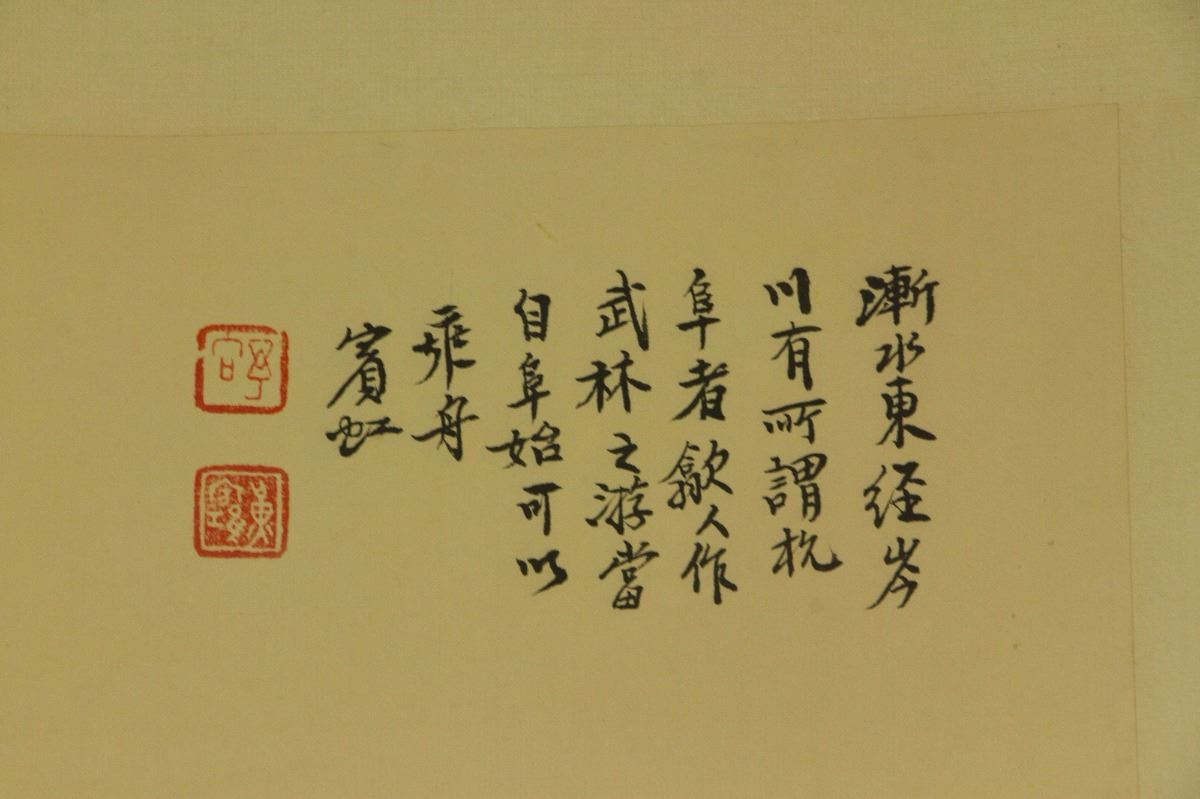 漸水東經岑
川有所謂杭
阜者歙人作
武林之游當
自阜始可以
乘舟
賓虹
黃賓虹